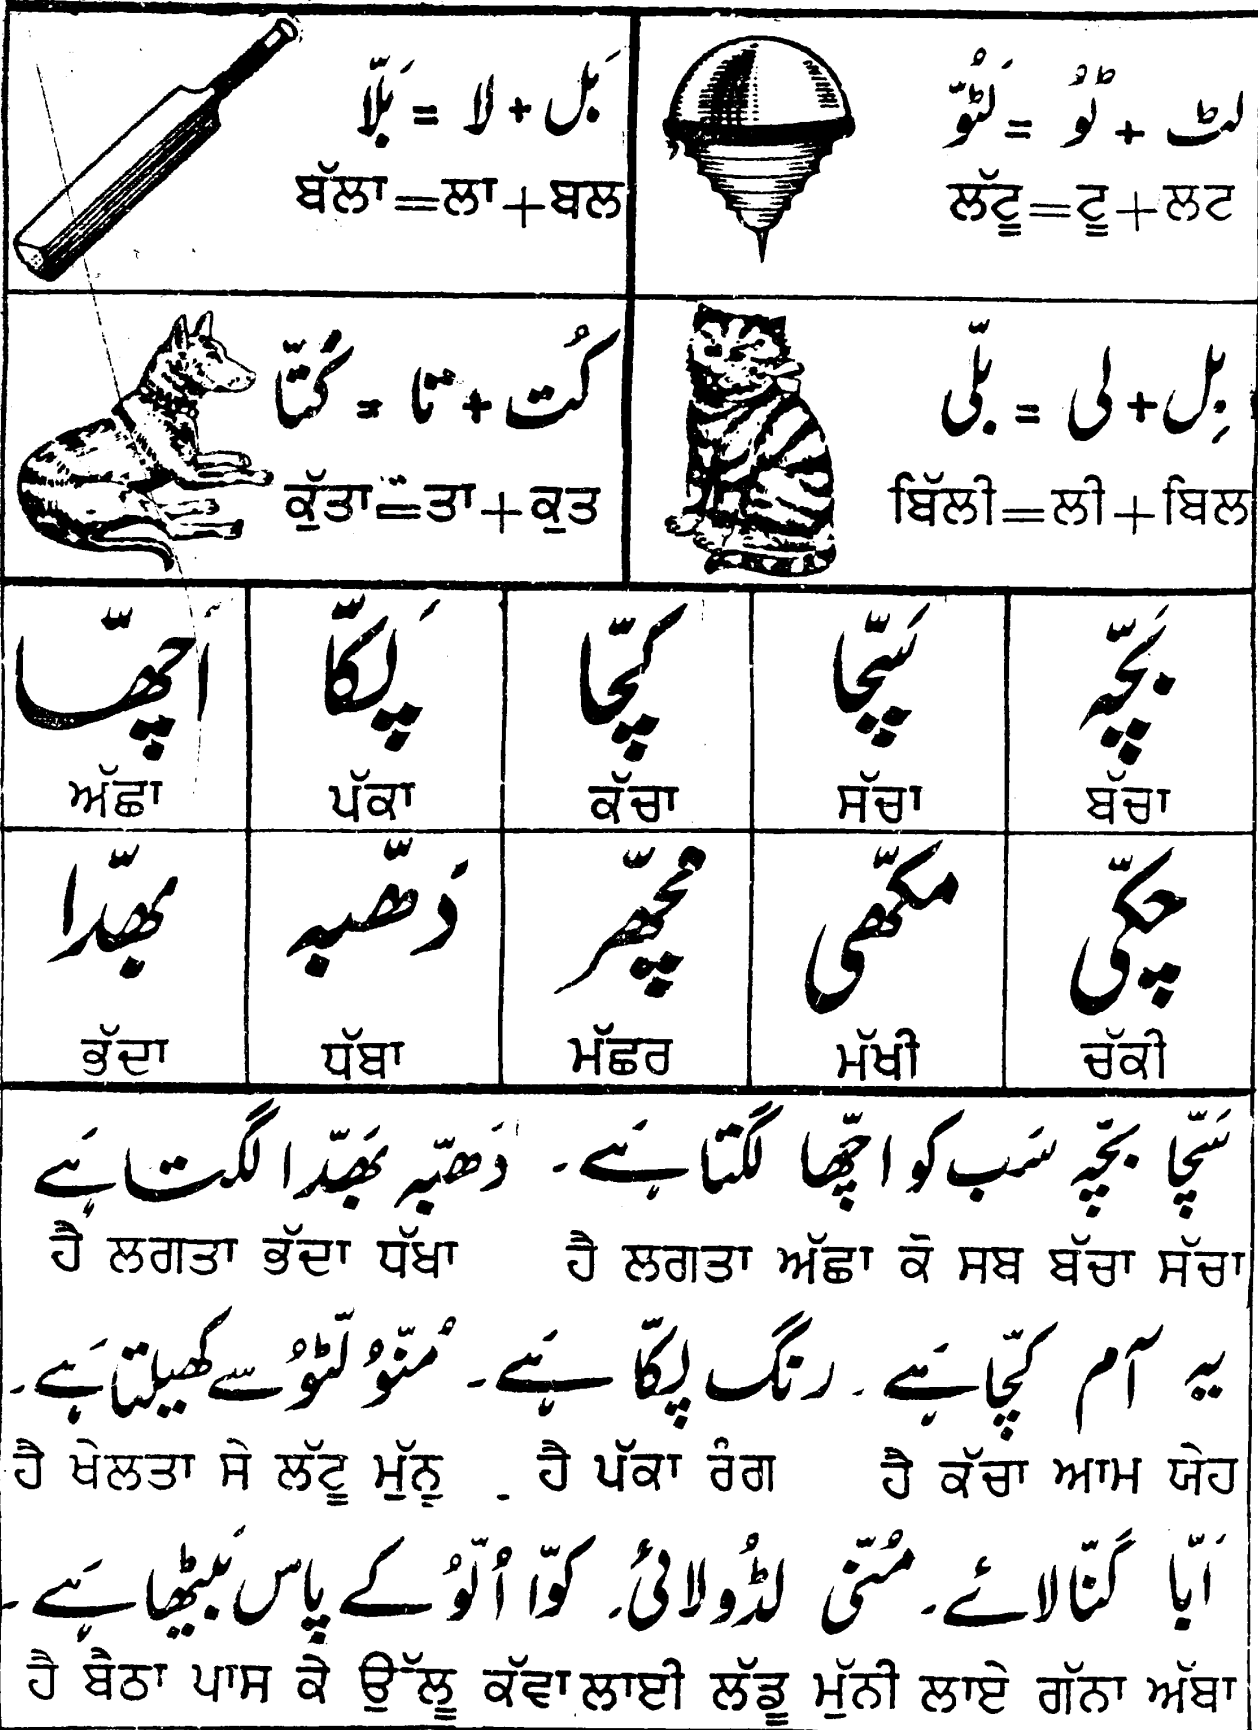 لٹ + ٹُو = لَٹُّو
ਲੱਟੂ=ਟੂ+ਲਟ
بَل + لا = بَلّا
ਬੱਲਾ=ਲਾ+ਬਲ
بِل + لی = بلّی
ਬਿੱਲੀ=ਲੀ+ਬਿਲ
کُت + تا = کُتّا
ਕੁੱਤਾ=ਤਾ+ਕੁਤ
بَچّہ سَچّا کچّا پَکّا اَچھّا
ਅੱਛਾ ਪੱਕਾ ਕੱਚਾ ਸੱਚਾ ਬੱਚਾ
چکّی مکّھی مچّھر دَھبّہ بھدّا
ਭੱਦਾ ਧੱਬਾ ਮੱਛਰ ਮੱਖੀ ਚੱਕੀ
سَچّا بچّہ سَب کو اچّھا لگتا ہَے ۔ دَھبّہ بھَدّا لگتا ہَے
ਹੈ ਲਗਤਾ ਭੱਦਾ ਧੱਖਾ ਹੈ ਲਗਤਾ ਅੱਛਾ ਕੋ ਸਬ ਬੱਚਾ ਸੱਚਾ
یہ آم کچّا ہَے ۔ رنگ پکّا ہَے ۔ مُنّوُ لٹّوُ سے کھیلتا ہَے ۔
ਹੈ ਖੇਲਤਾ ਸੇ ਲੱਟੂ ਮੁੱਨੂ ਹੈ ਪੱਕਾ ਰੰਗ ਹੈ ਕੱਚਾ ਆਮ ਯੇਹ
اَبّا گنّا لائے ۔ مُنّی لڈُو لائی ۔ کوّا اُلّوُ کے پاس بَیٹھا ہَے ۔
ਹੈ ਬੈਠਾ ਪਾਸ ਕੇ ਉੱਲੂ ਕੱਵਾ ਲਾਈ ਲੱਡੂ ਮੁੱਨੀ ਲਾਏ ਗੱਨਾ ਅੱਬਾ